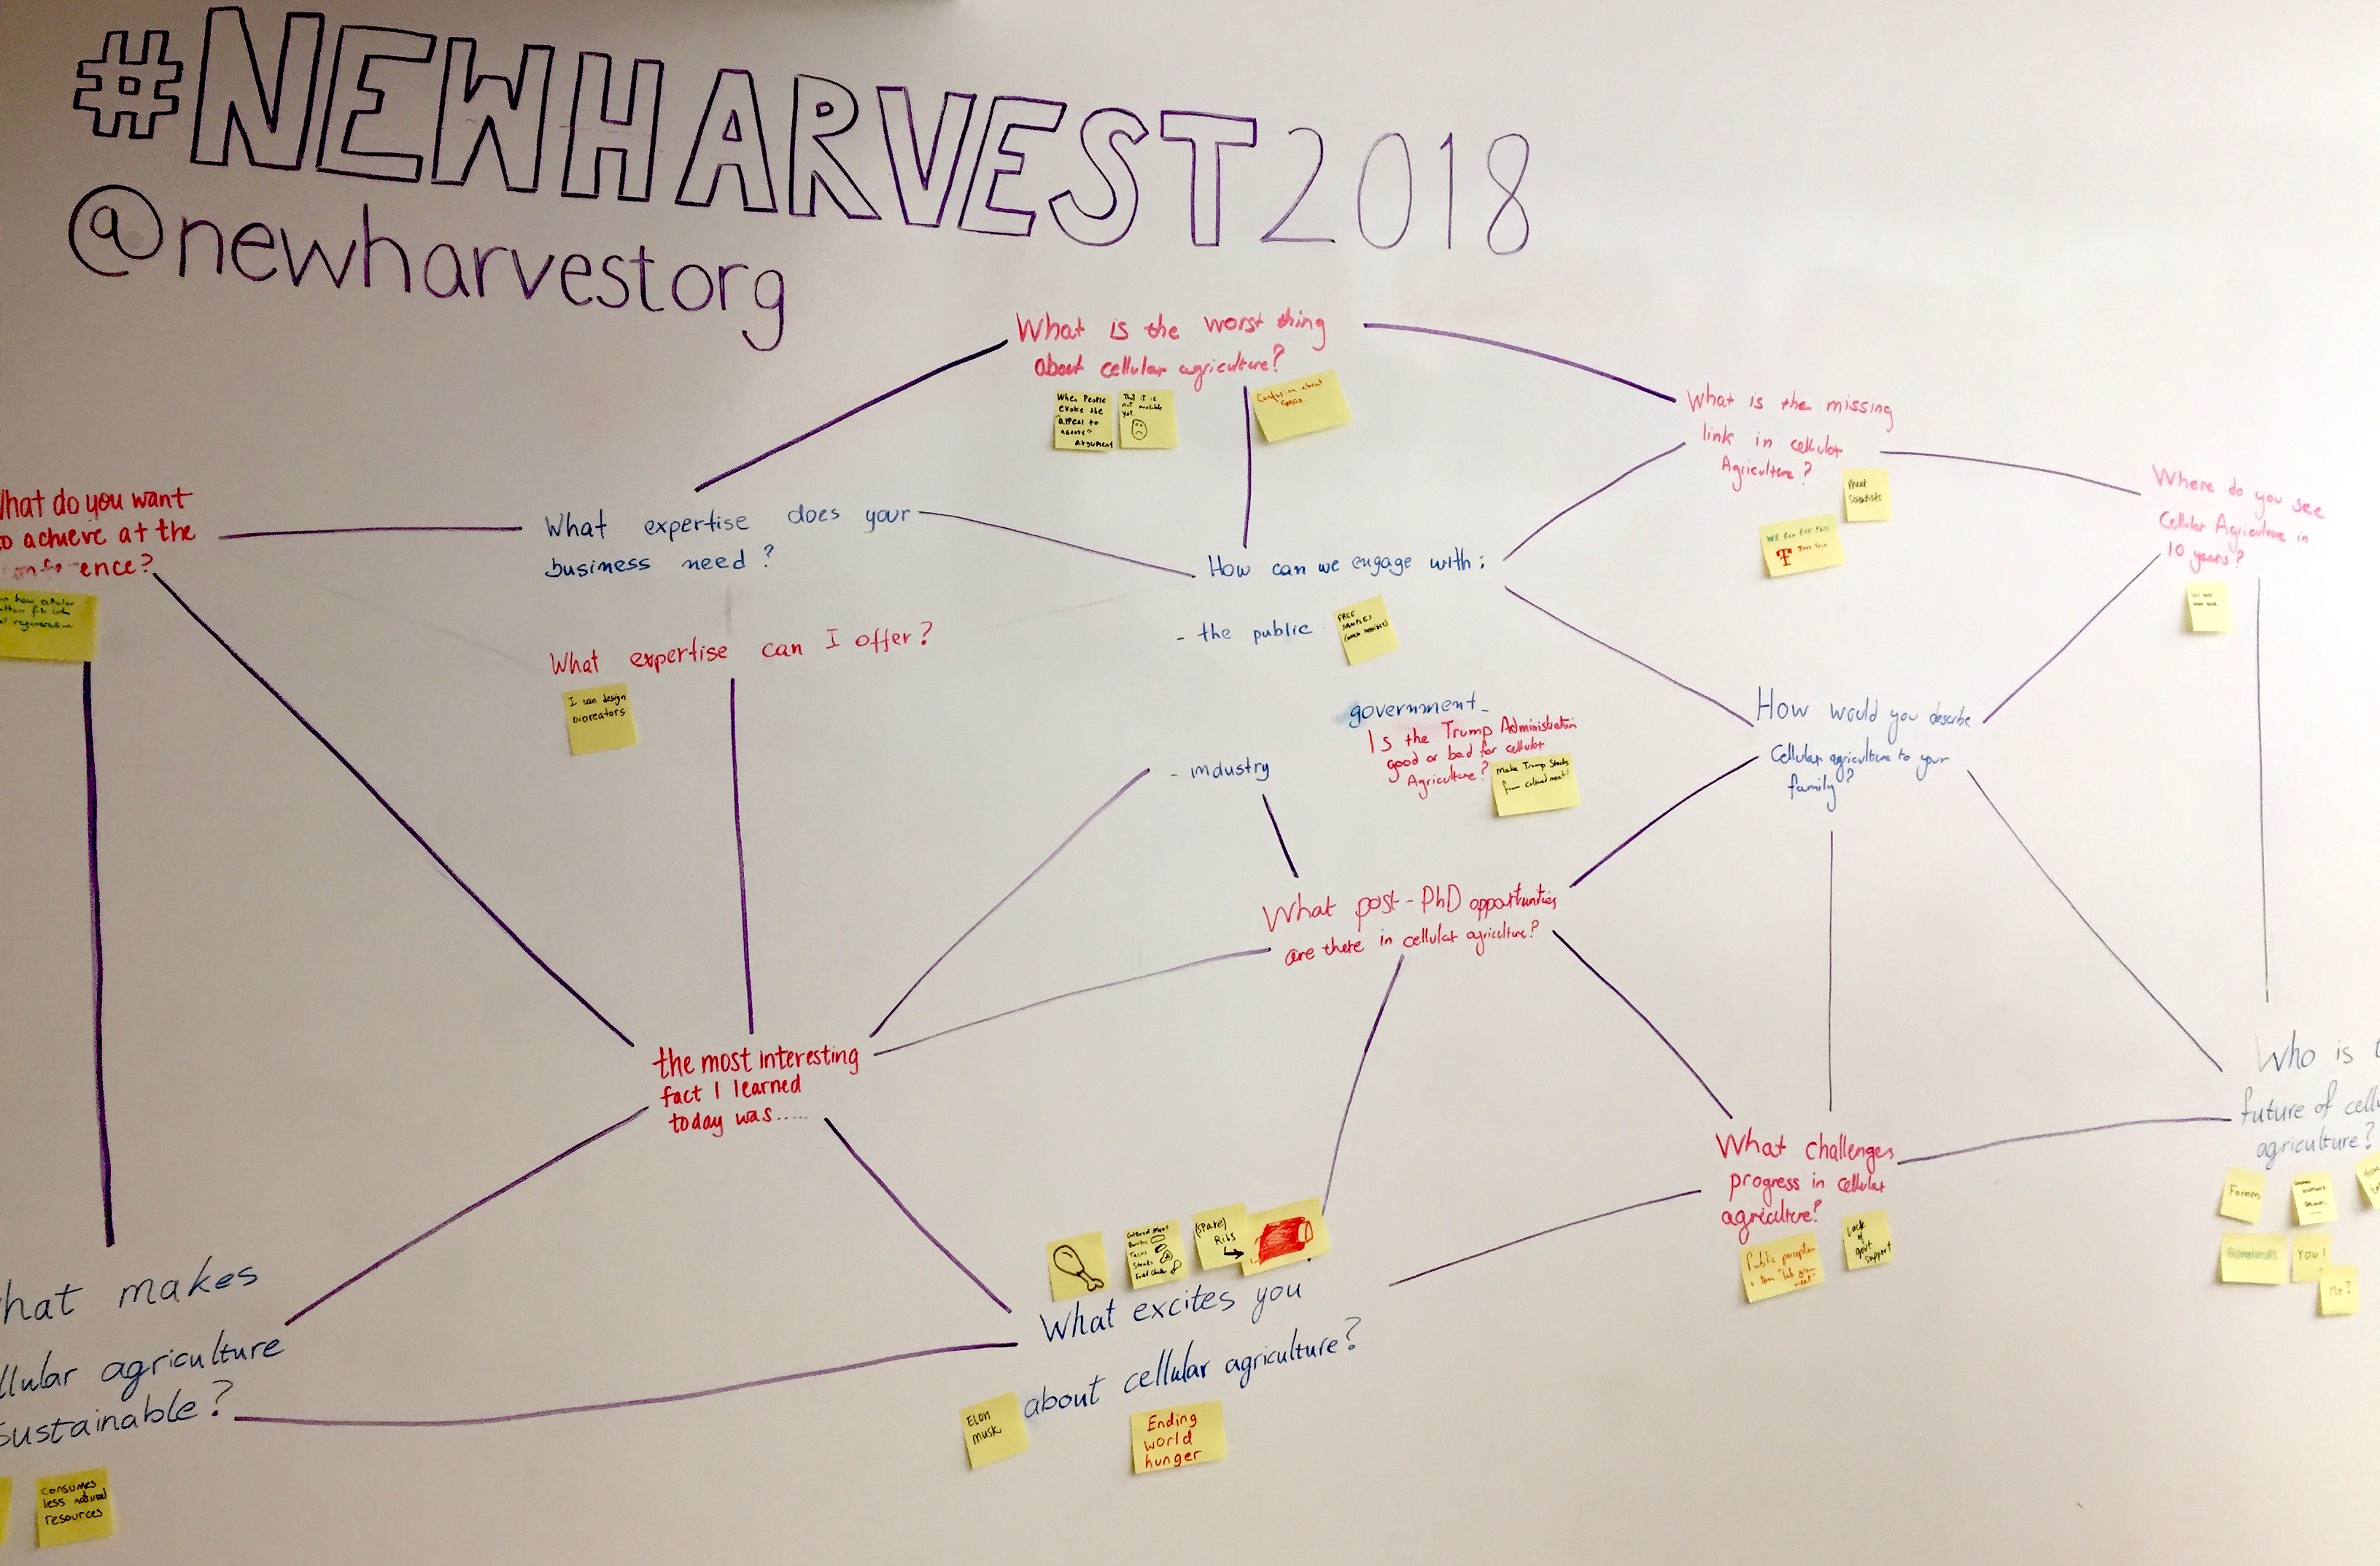 #NEWHARVEST2018
@newharvestorg
What is the worst thing
about cellular agriculture?
When People
evoke the
"appeal to
nature"
argument
That it is
not available
yet.
Confusion about
GMOs
What is the missing
link in cellular
Agriculture?
Meat
Scientists
WE Can Fix this
Where do you see
Cellular Agriculture in
10 years?
hat do you want
o achieve at the
ence?
What expertise does your
business need?
What expertise can I offer?
I can design
bioreators
How can we engage with:
- the public
FREE
SAMPLES
government
Is the Trump Administration
good or bad for cellular
Agriculture?
Make Trump Steaks
from cultured meat!
- industry
How would you describe
Cellular agriculture to your
family?
What post-PhD opportunities
are there in cellular agriculture?
the most interesting
fact I learned
today was.....
What challenges
progress in cellular
agriculture?
Public perception
Lack
of
govt
support
Who is t
future of cellu
agriculture?
Farmers
You!
Me?
hat makes
llular agriculture
sustainable?
consumes
less natural
resources
Cultured Meat
Burritos
Tacos
Steaks
Fried Chicken
(spare)
Ribs
What excites you
about cellular agriculture?
Elon
musk
Ending
world
hunger